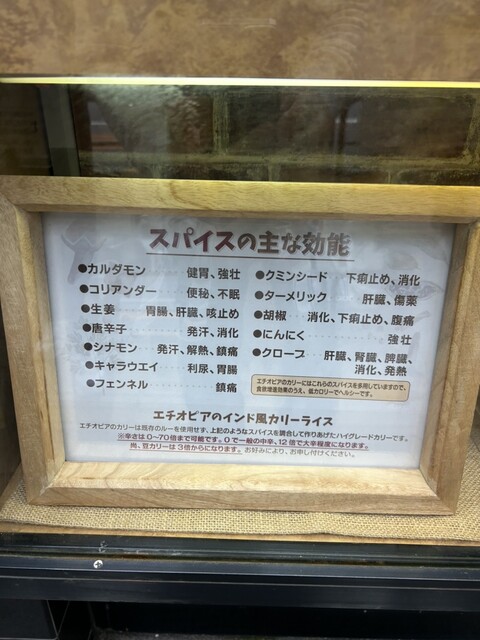 スパイスの主な効能
●カルダモン 健胃、強壮
●コリアンダー 便秘、不眠
●生姜 胃腸、肝臓、咳止め
●唐辛子 発汗、消化
●シナモン 発汗、解熱、鎮痛
●キャラウエイ 利尿、胃腸
●フェンネル 鎮痛
●クミンシード 下痢止め、消化
●ターメリック 肝臓、傷薬
●胡椒 消化、下痢止め、腹痛
●にんにく 強壮
●クローブ 肝臓、腎臓、脾臓、
消化、発熱
エチオピアのカリーにはこれらのスパイスを多用していますので、
食欲増進効果のうえ、低カロリーでヘルシーです。
エチオピアのインド風カリーライス
エチオピアのカリーは既存のルーを使用せず、上記のようなスパイスを調合して作りあげたハイグレードカリーです。
※辛さは0〜70倍まで可能です。0で一般の中辛、12倍で大辛程度になります。
尚、豆カリーは3倍からになります。お好みにより、お申し付けください。